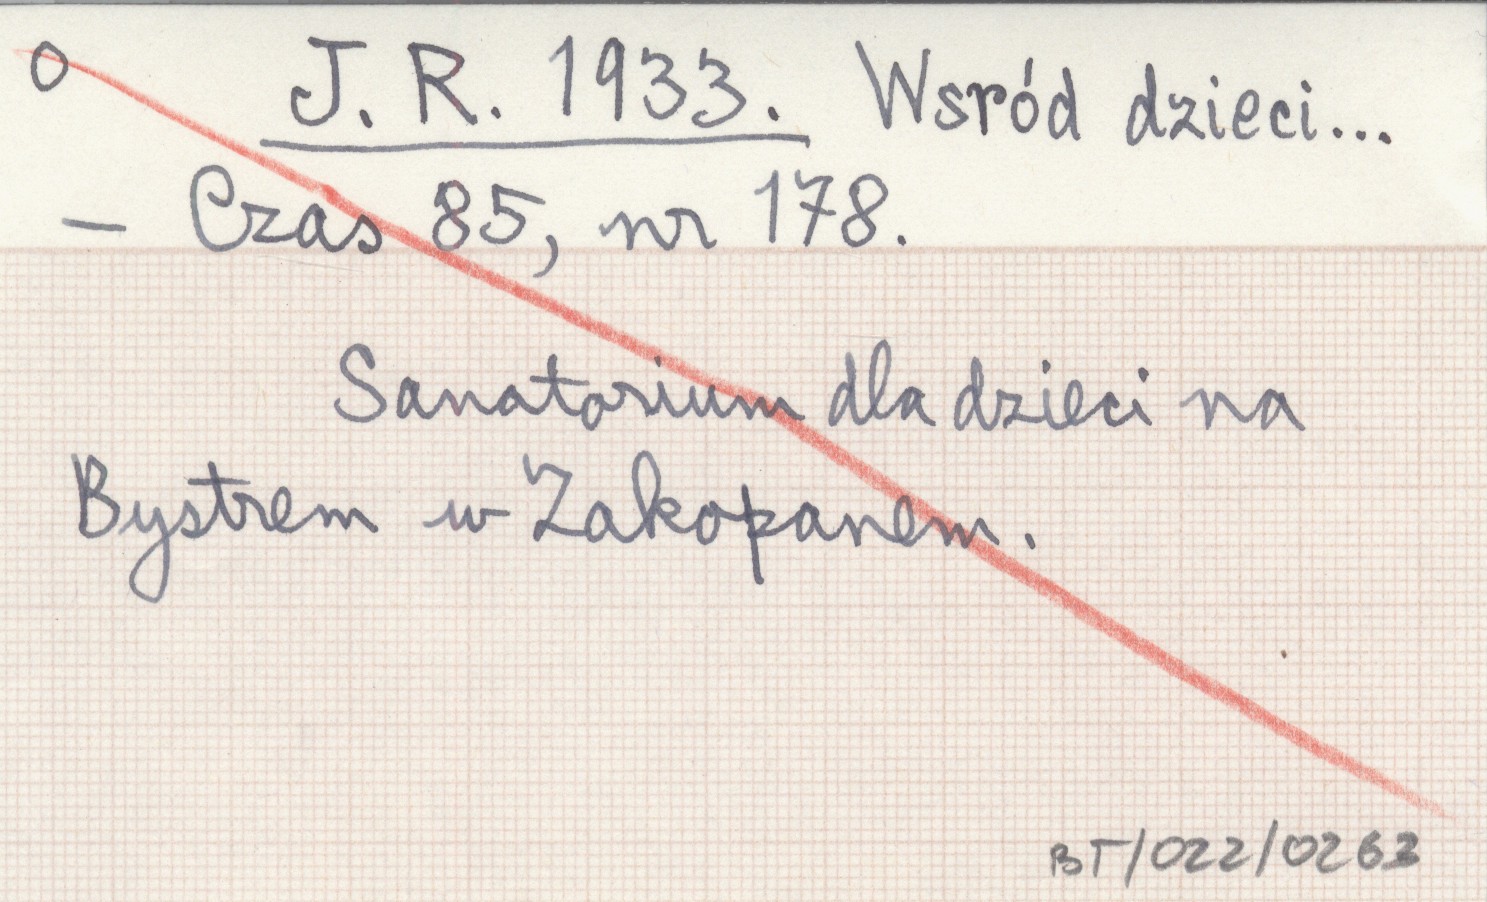 O J. R. 1933. Wsród dzieci...
— Czas 85, nr 178.
Sanatorium dla dzieci na
Bystrem w Zakopanem.
BT/022/0263